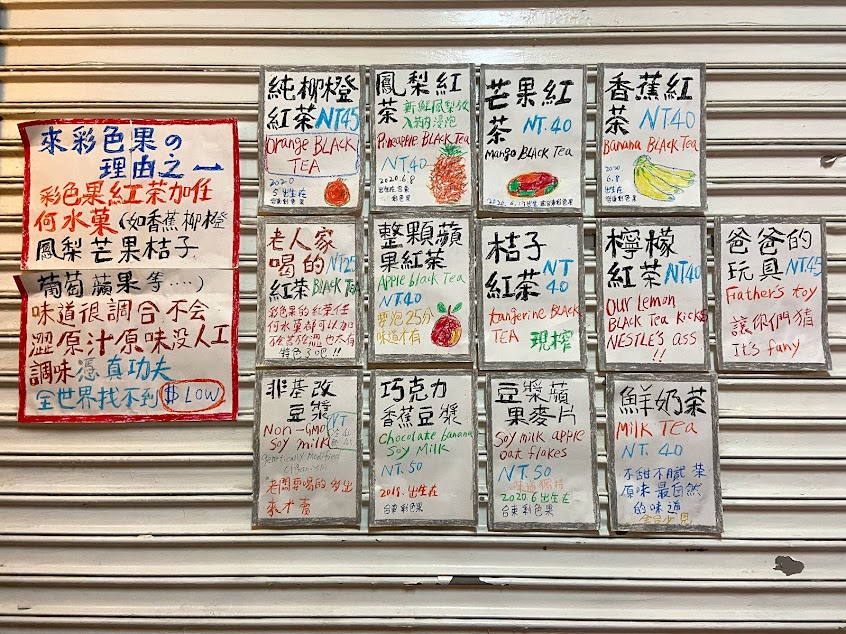 來彩色果の
理由之一
彩色果紅茶加任
何水菓(如香蕉柳橙
鳳梨芒果桔子
葡萄蘋果等....)
味道很調合不會
澀原汁原味没人工
調味憑真功夫
全世界找不到 $ LOW
純柳橙
紅茶 NT45
Orange BLACK
TEA
2020
5 出生在
台東彩色果
鳳梨紅
茶 新鮮鳳梨放
入茶內浸泡
Pineapple BLACK Tea
NT40
2020.6.8
出生在台東
彩色果
芒果紅
茶 NT.40
Mango BLACK Tea
香蕉紅
茶 NT40
Banana BLACK Tea
2020
6.8
出生在
台東彩色果
老人家
喝的 NT25
紅茶 BLACK TEA
彩色果的紅茶任
何水菓都可以加
特色了吧!!
整顆蘋
果紅茶
Apple black Tea
NT40
要泡25分
味道才有
桔子
紅茶 NT
40
tangerine BLACK
TEA 現榨
檸檬
紅茶 NT40
OUR Lemon
BLACK Tea kicks
NESTLE'S ass
!!
爸爸的
玩具 NT45
Father's toy
讓你們猜
It's fany
非基改
豆漿
Non-GMO
Soy milk
genetically Modified
老闆要喝的多出
來才賣
巧克力
香蕉豆漿
Chocolate banana
Soy Milk
NT.50
2018.出生在
台東彩色果
豆漿蘋
果麥片
Soy milk apple
oat flakes
NT.50
味道獨特
2020.6出生在
台東彩色果
鮮奶茶
Milk Tea
NT. 40
不甜不膩 茶
原味最自然
的味道